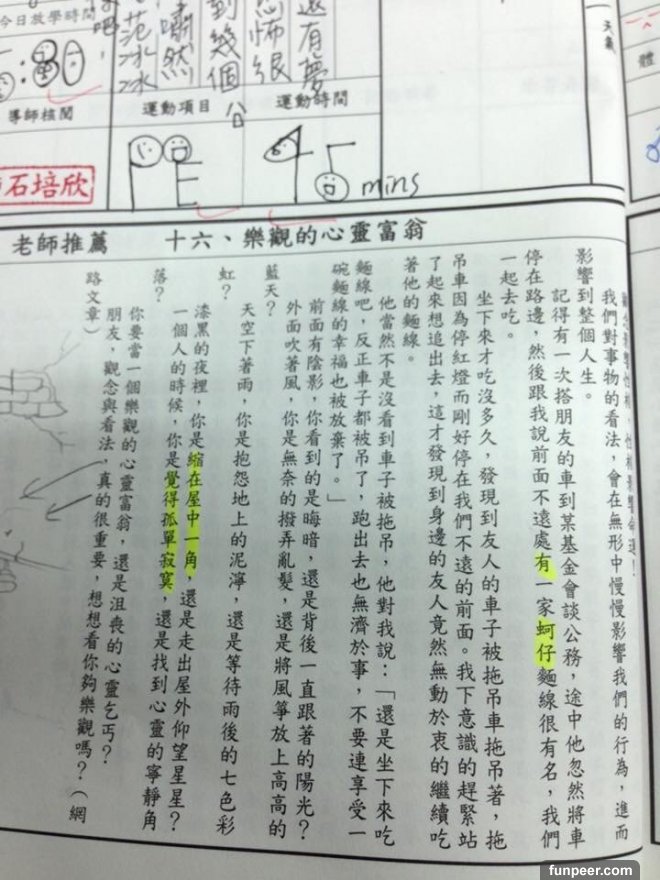 天氣
體
還有夢
恐怖很
到幾個公
嘯然
范冰冰
吧,
今日放學時間
:30
導師核閱
運動項目
運動時間
石培欣
PE
45 mins
老師推薦
十六、樂觀的心靈富翁
我們對事物的看法,會在無形中慢慢影響我們的行為,進而
影響到整個人生。
記得有一次搭朋友的車到某基金會談公務,途中他忽然將車
停在路邊,然後跟我說前面不遠處有一家蚵仔麵線很有名,我們
一起去吃。
坐下來才吃沒多久,發現到友人的車子被拖吊車拖吊著,拖
吊車因為停紅燈而剛好停在我們不遠的前面。我下意識的趕緊站
了起來想追出去,這才發現到身邊的友人竟然無動於衷的繼續吃
著他的麵線。
他當然不是沒看到車子被拖吊,他對我說:「還是坐下來吃
麵線吧,反正車子都被吊了,跑出去也無濟於事,不要連享受一
碗麵線的幸福也被放棄了。」
前面有陰影,你看到的是晦暗,還是背後一直跟著的陽光?
外面吹著風,你是無奈的撥弄亂髮,還是將風箏放上高高的
藍天?
天空下著雨,你是抱怨地上的泥濘,還是等待雨後的七色彩
虹?
漆黑的夜裡,你是縮在屋中一角,還是走出屋外仰望星星?
一個人的時候,你是覺得孤單寂寞,還是找到心靈的寧靜角
落?
你要當一個樂觀的心靈富翁,還是沮喪的心靈乞丐?
朋友,觀念與看法,真的很重要,想想看你夠樂觀嗎?(網
路文章)
funpeer.com